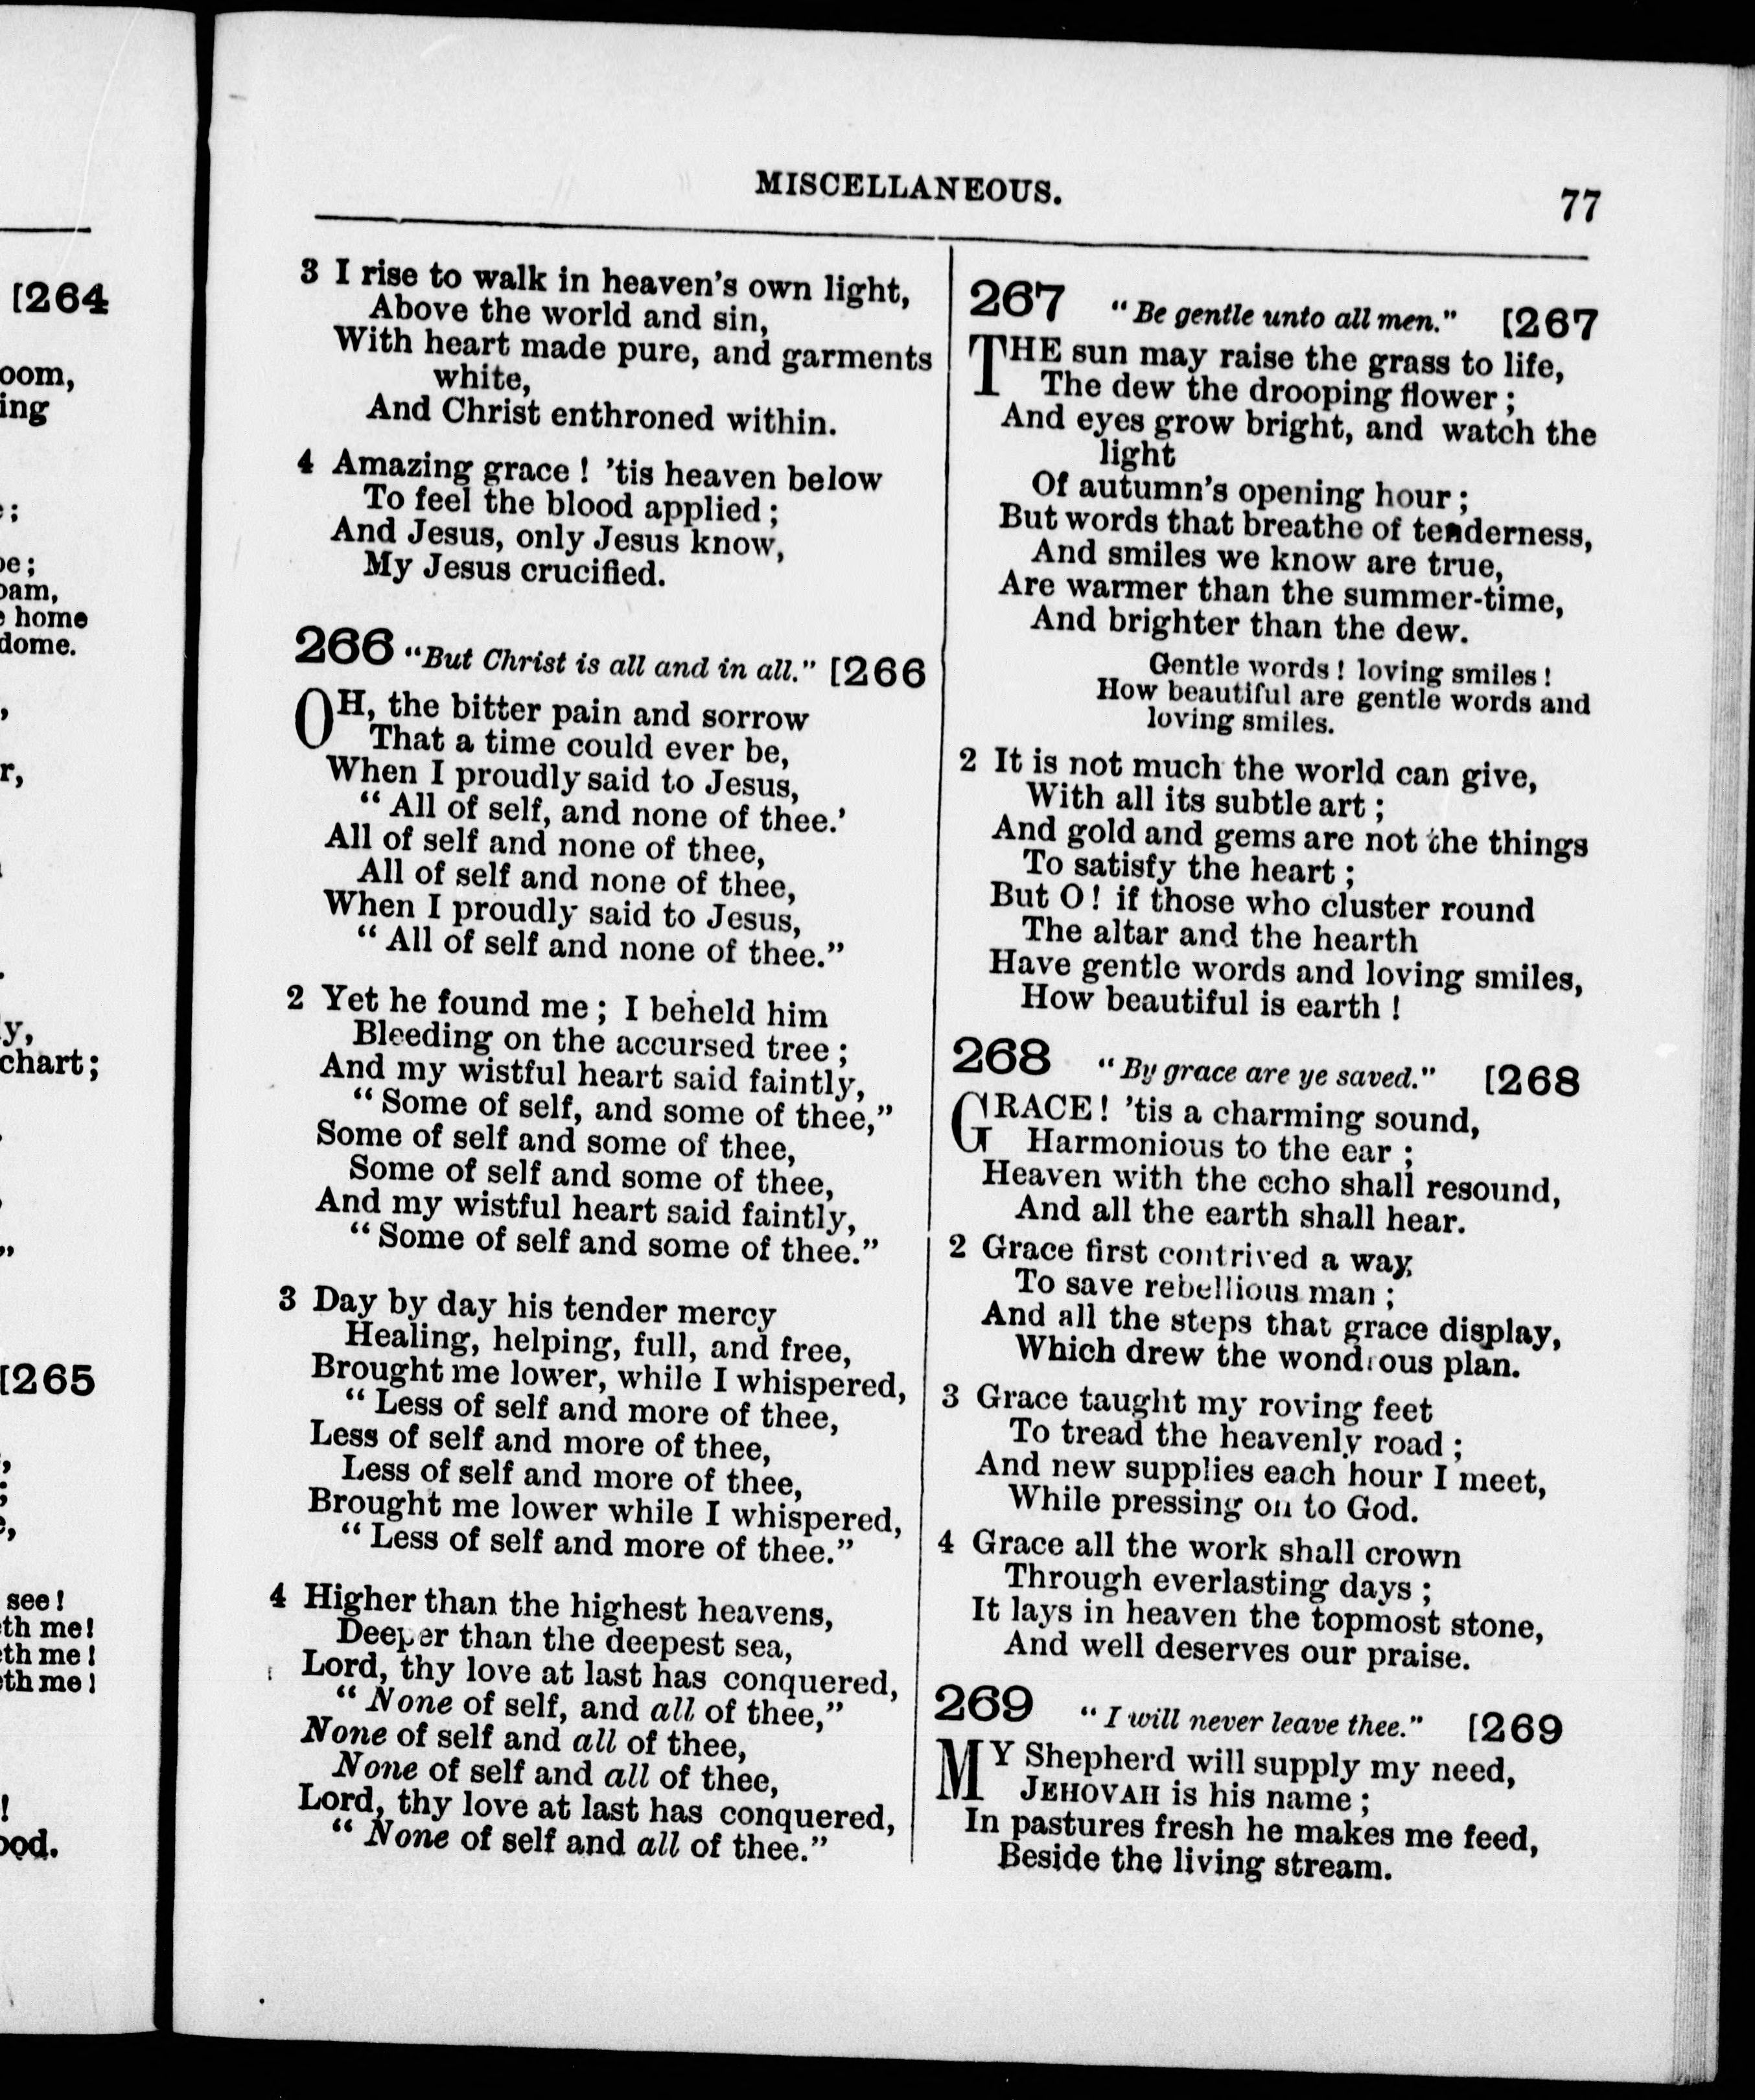 [264
oom,
ing
;
home
dome.
chart;
[265
see!
th me!
th me!
th me!
MISCELLANEOUS.
77
3 I rise to walk in heaven's own light,
Above the world and sin,
With heart made pure, and garments
white,
And Christ enthroned within.
4 Amazing grace ! 'tis heaven below
To feel the blood applied ;
And Jesus, only Jesus know,
My Jesus crucified.
266 "But Christ is all and in all." [266
OH, the bitter pain and sorrow
That a time could ever be,
When I proudly said to Jesus,
" All of self, and none of thee.'
All of self and none of thee,
All of self and none of thee,
When I proudly said to Jesus,
" All of self and none of thee."
2 Yet he found me ; I beheld him
Bleeding on the accursed tree ;
And my wistful heart said faintly,
" Some of self, and some of thee,"
Some of self and some of thee,
Some of self and some of thee,
And my wistful heart said faintly,
" Some of self and some of thee."
3 Day by day his tender mercy
Healing, helping, full, and free,
Brought me lower, while I whispered,
" Less of self and more of thee,
Less of self and more of thee,
Less of self and more of thee,
Brought me lower while I whispered,
" Less of self and more of thee."
4 Higher than the highest heavens,
Deeper than the deepest sea,
Lord, thy love at last has conquered,
" None of self, and all of thee,"
None of self and all of thee,
None of self and all of thee,
Lord, thy love at last has conquered,
" None of self and all of thee."
267 " Be gentle unto all men." [267
THE sun may raise the grass to life,
The dew the drooping flower ;
And eyes grow bright, and watch the
light
Of autumn's opening hour ;
But words that breathe of tenderness,
And smiles we know are true,
Are warmer than the summer-time,
And brighter than the dew.
Gentle words ! loving smiles !
How beautiful are gentle words and
loving smiles.
2 It is not much the world can give,
With all its subtle art ;
And gold and gems are not the things
To satisfy the heart ;
But O ! if those who cluster round
The altar and the hearth
Have gentle words and loving smiles,
How beautiful is earth !
268 " By grace are ye saved." [268
GRACE ! 'tis a charming sound,
Harmonious to the ear ;
Heaven with the echo shall resound,
And all the earth shall hear.
2 Grace first contrived a way,
To save rebellious man ;
And all the steps that grace display,
Which drew the wondrous plan.
3 Grace taught my roving feet
To tread the heavenly road ;
And new supplies each hour I meet,
While pressing on to God.
4 Grace all the work shall crown
Through everlasting days ;
It lays in heaven the topmost stone,
And well deserves our praise.
269 " I will never leave thee." [269
MY Shepherd will supply my need,
JEHOVAH is his name ;
In pastures fresh he makes me feed,
Beside the living stream.